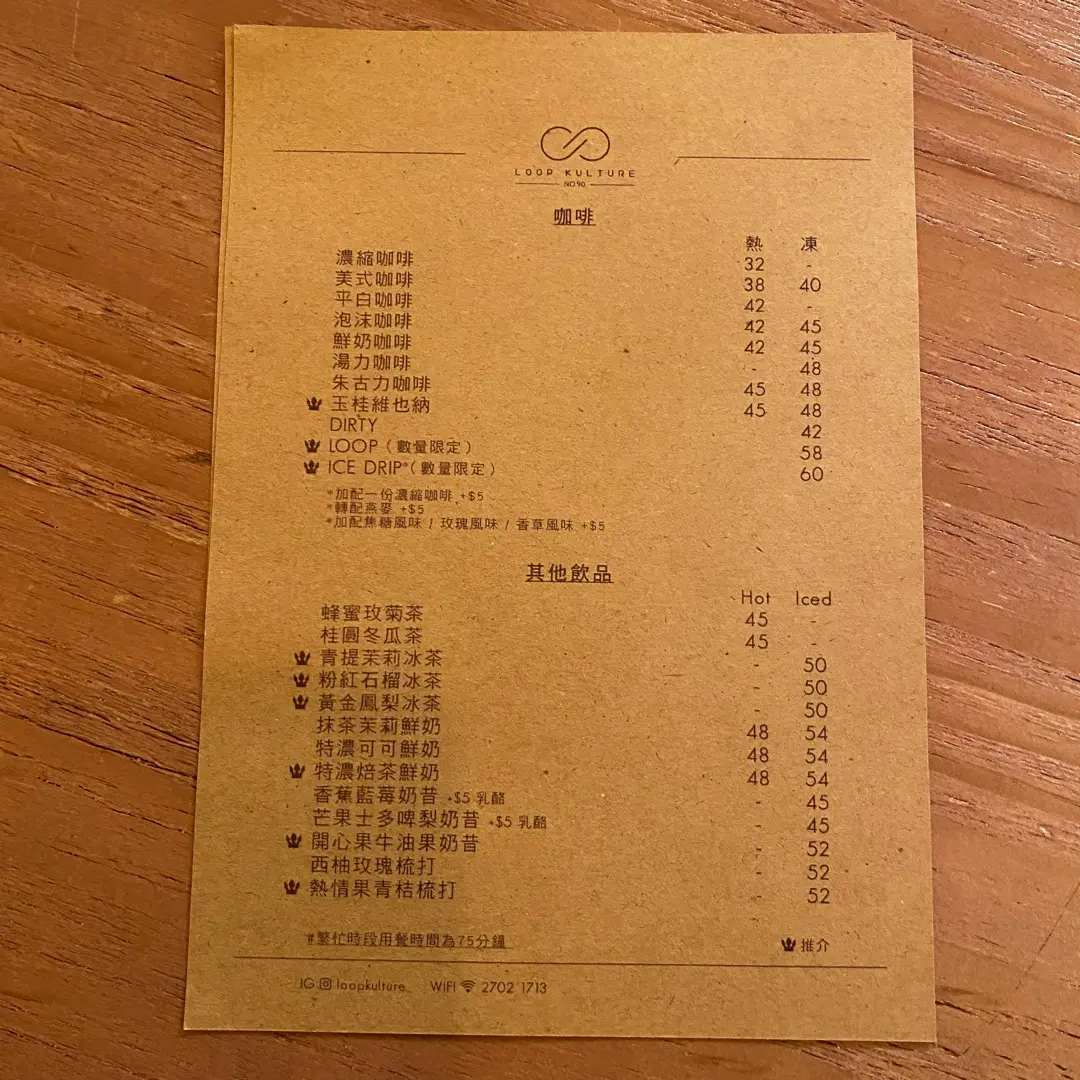 LOOP KULTURE
NO.90
咖啡
熱 凍
濃縮咖啡 32 -
美式咖啡 38 40
平白咖啡 42 -
泡沫咖啡 42 45
鮮奶咖啡 42 45
湯力咖啡 - 48
朱古力咖啡 45 48
玉桂維也納 45 48
DIRTY 42
LOOP（數量限定） 58
ICE DRIP*（數量限定） 60
*加配一份濃縮咖啡 +$5
*轉配燕麥 +$5
*加配焦糖風味 / 玫瑰風味 / 香草風味 +$5
其他飲品
Hot Iced
蜂蜜玫菊茶 45 -
桂圓冬瓜茶 45 -
青提茉莉冰茶 - 50
粉紅石榴冰茶 - 50
黃金鳳梨冰茶 - 50
抹茶茉莉鮮奶 48 54
特濃可可鮮奶 48 54
特濃焙茶鮮奶 48 54
香蕉藍莓奶昔 +$5 乳酪 - 45
芒果士多啤梨奶昔 +$5 乳酪 - 45
開心果牛油果奶昔 - 52
西柚玫瑰梳打 - 52
熱情果青桔梳打 - 52
#繁忙時段用餐時間為75分鐘
推介
IG loopkulture WIFI 2702 1713